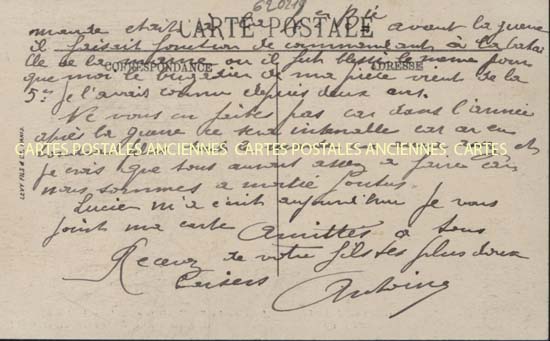 620219
CARTE POSTALE
mande était à la 5e Bie avant la guerre
il faisait fonction de commandant, à la batai
lle de la marne ou il fut blessé le même jour
CORRESPONDANCE
ADRESSE
que moi le brigadier de ma pièce vient de la
5e je l'avais connu depuis deux ans.
Ne vous en faite pas car dans l'année
après la guerre ce sera intenable car
CARTES POSTALES ANCIENNES CARTES POSTALES ANCIENNES CARTES
je crois que tous aurons assez à faire car
nous sommes a moitié
Lucien m'a écrit aujourd'hui je vous
joint ma carte Amitiés a tous
Recevez de votre fils les plus doux
baisers Antoine
LEVY FILS & Cie, PARIS